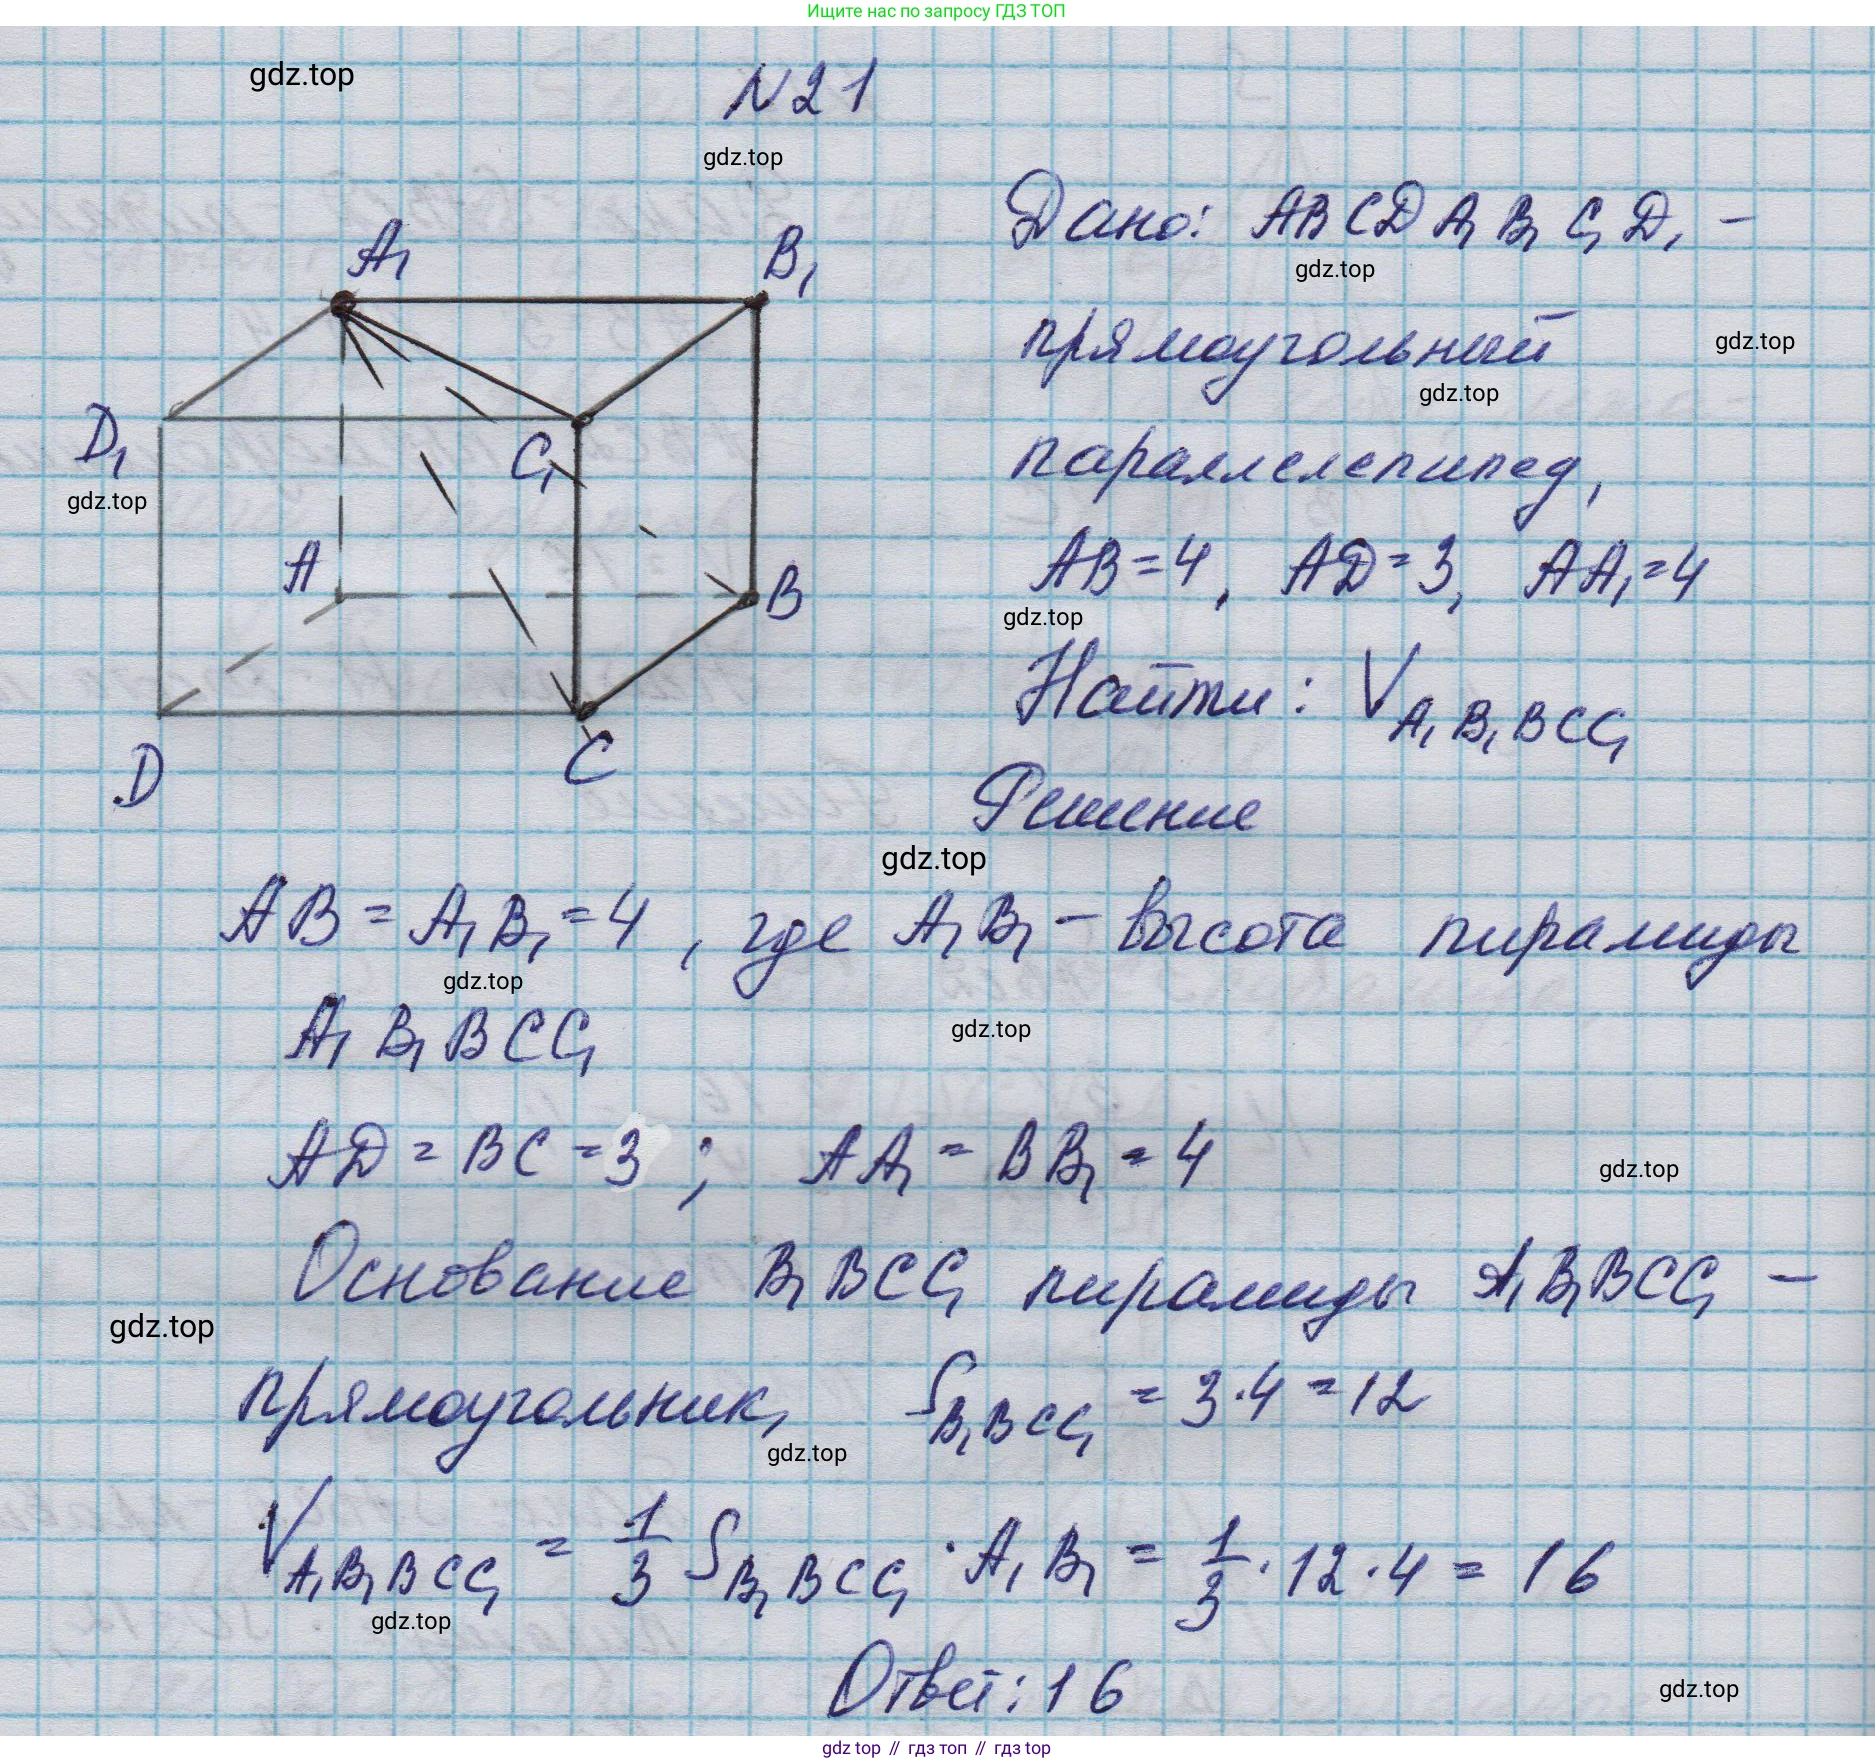 Ищите нас по запросу ГДЗ ТОП
gdz.top
N 21
gdz.top
A₁
B₁
D₁
C₁
gdz.top
A
B
D
C
Дано: ABCDA₁B₁C₁D₁ –
gdz.top
прямоугольный
gdz.top
gdz.top
параллелепипед,
AB=4, AD=3, AA₁=4
gdz.top
Найти: V A₁B₁BCC₁
Решение
gdz.top
AB = A₁B₁ = 4, где A₁B₁ – высота пирамиды
gdz.top
A₁B₁BCC₁
gdz.top
AD = BC = 3; AA₁ = BB₁ = 4
gdz.top
Основание B₁BCC₁ пирамиды A₁B₁BCC₁ –
gdz.top
прямоугольник, S B₁BCC₁ = 3·4 = 12
gdz.top
V A₁B₁BCC₁ = 1/3 S B₁BCC₁ · A₁B₁ = 1/3 · 12 · 4 = 16
gdz.top
Ответ: 16
gdz.top
gdz top // гдз топ // гдз top